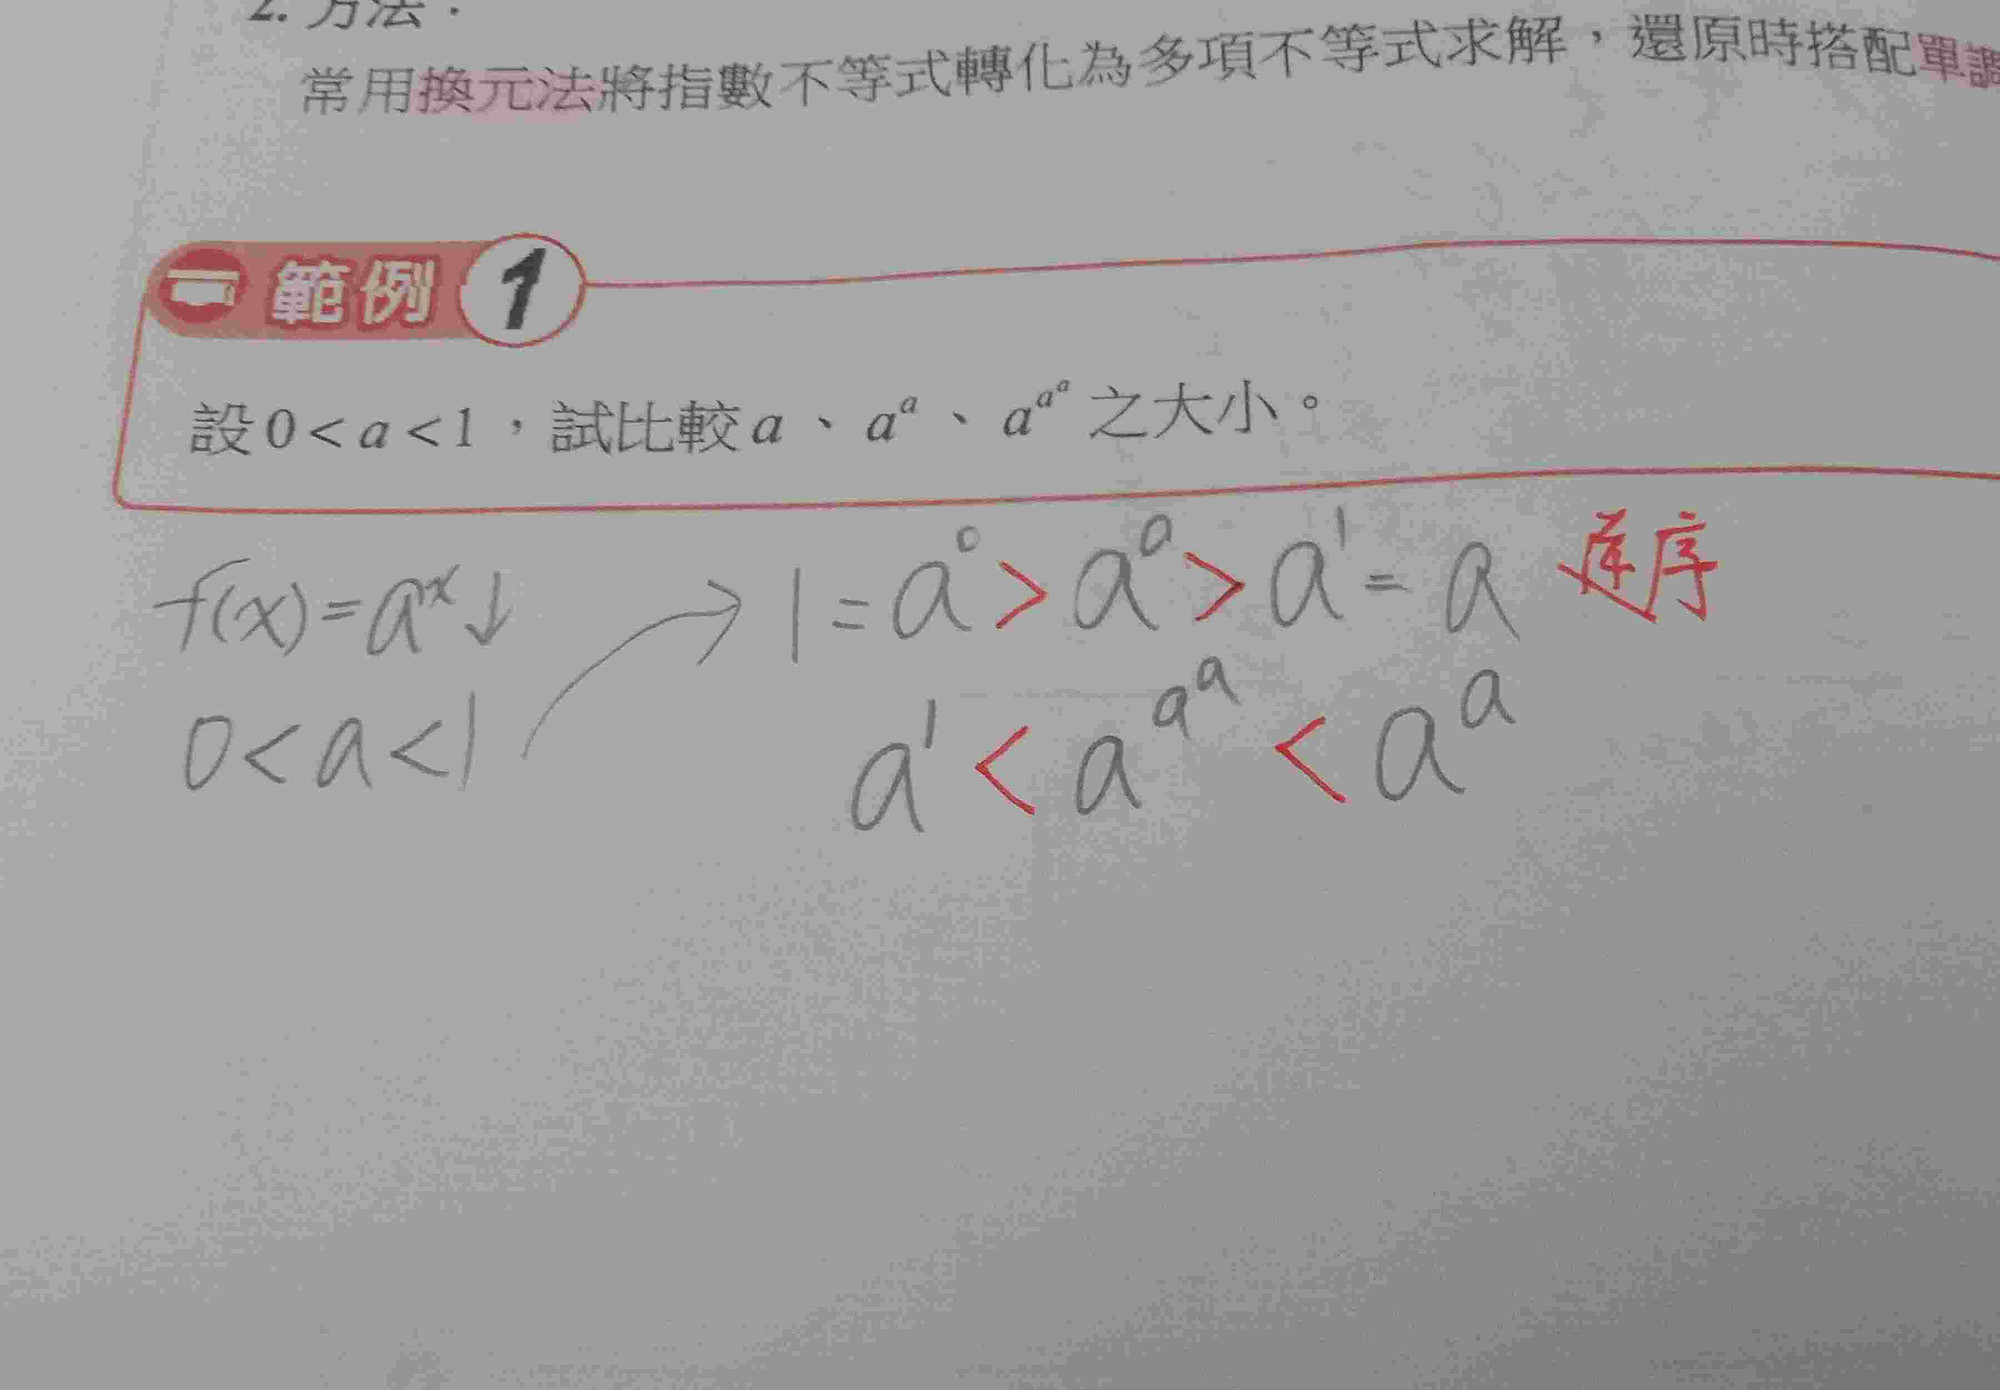 2. 方法：
常用換元法將指數不等式轉化為多項不等式求解，還原時搭配單調
範例 1
設0<a<1，試比較a、a^a、a^{a^a}之大小。
f(x)=a^x↓ 1=a^0>a^a>a^1=a 逆序
0<a<1 a^1<a^{a^a}<a^a